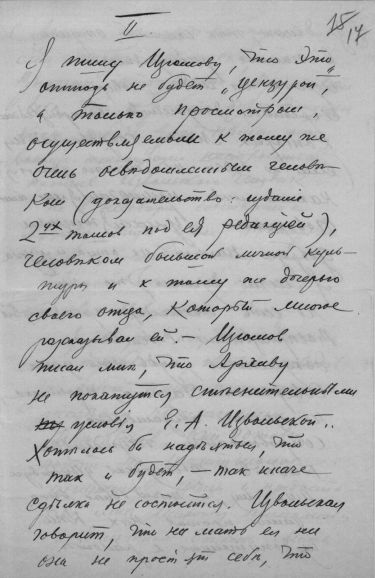 II
18/17
Я пишу Изюмову, что это
отнюдь не будет „цензурой“,
а только просмотром,
осуществляемым к тому же
очень осведомленным человѣ-
ком (доказательство: издание
2ух томов под ея редакцiей),
человѣком большой личной куль-
туры и к тому же дочерью
своего отца, который многое
разсказывал ей. – Изюмов
писал мнѣ, что Архиву
не покажутся стѣснительными
условiя Е. А. Извольской..
Хотѣлось бы надѣяться, что
так и будет, – так иначе
сдѣлка не состоится. Извольская
говорит, что ни мать ея ни
она не простят себѣ, что